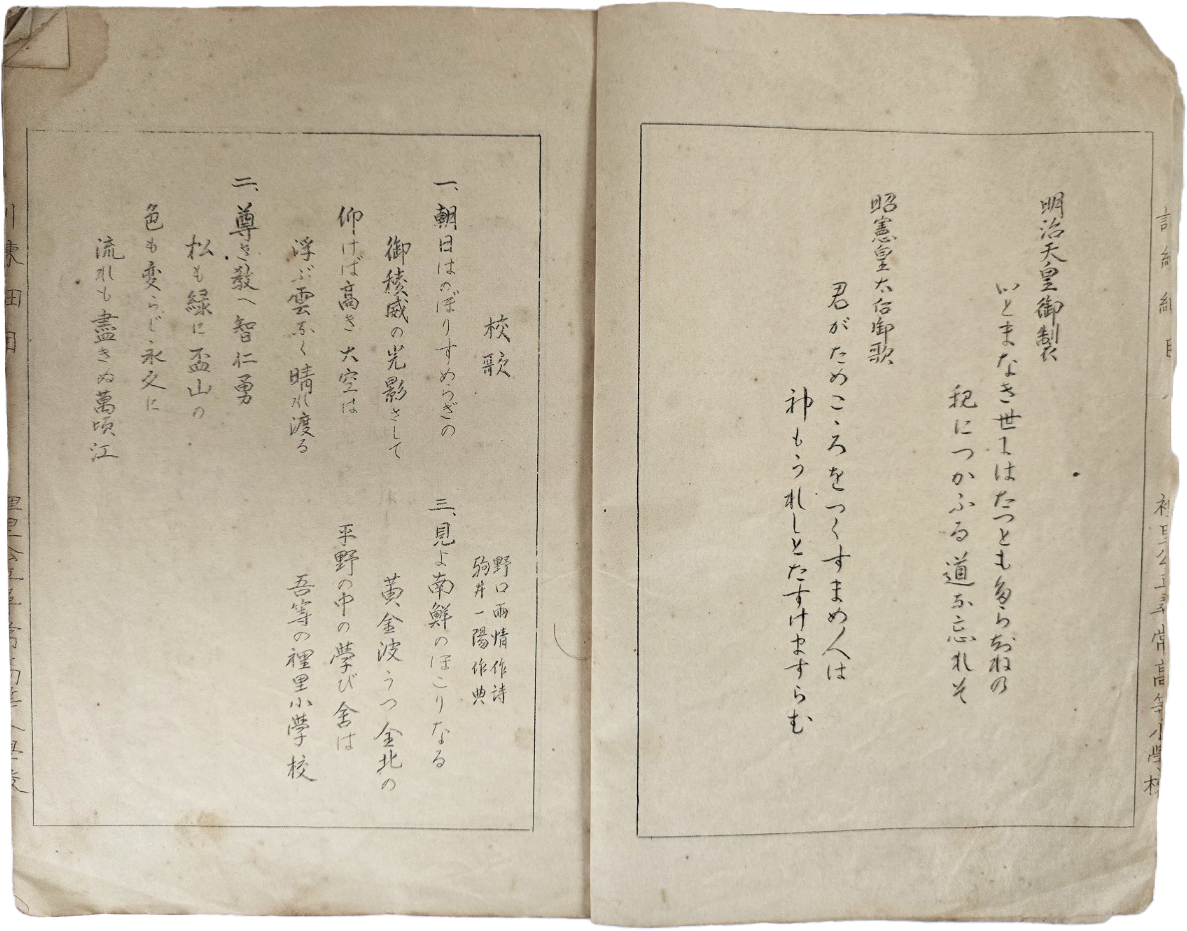 明治天皇御製
いとまなき世にはたつともたらちねの
親につかふる道な忘れそ
昭憲皇太后御歌
君がためこゝろをつくすまめ人は
神もうれしとたすけますらむ
校歌
野口雨情作詩
駒井一陽作典
一、朝日はのぼりすめらぎの
御稜威の光影さして
仰げば高き大空は
浮ぶ雲なく晴れ渡る
二、尊き教へ智仁勇
松も緑に盃山の
色も変らじ永久に
流れも盡きぬ萬頃江
三、見よ南鮮のほこりなる
黄金波うつ全北の
平野の中の學び舍は
吾等の裡里小學校